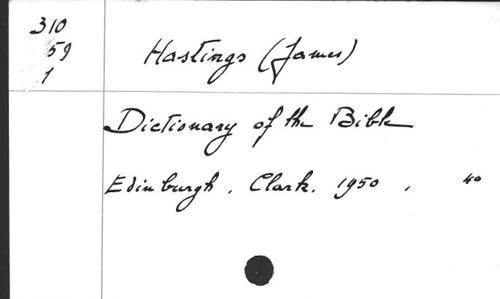 310
59
1
Hastings (James)
Dictionary of the Bible
Edinburgh. Clark. 1950, 4º